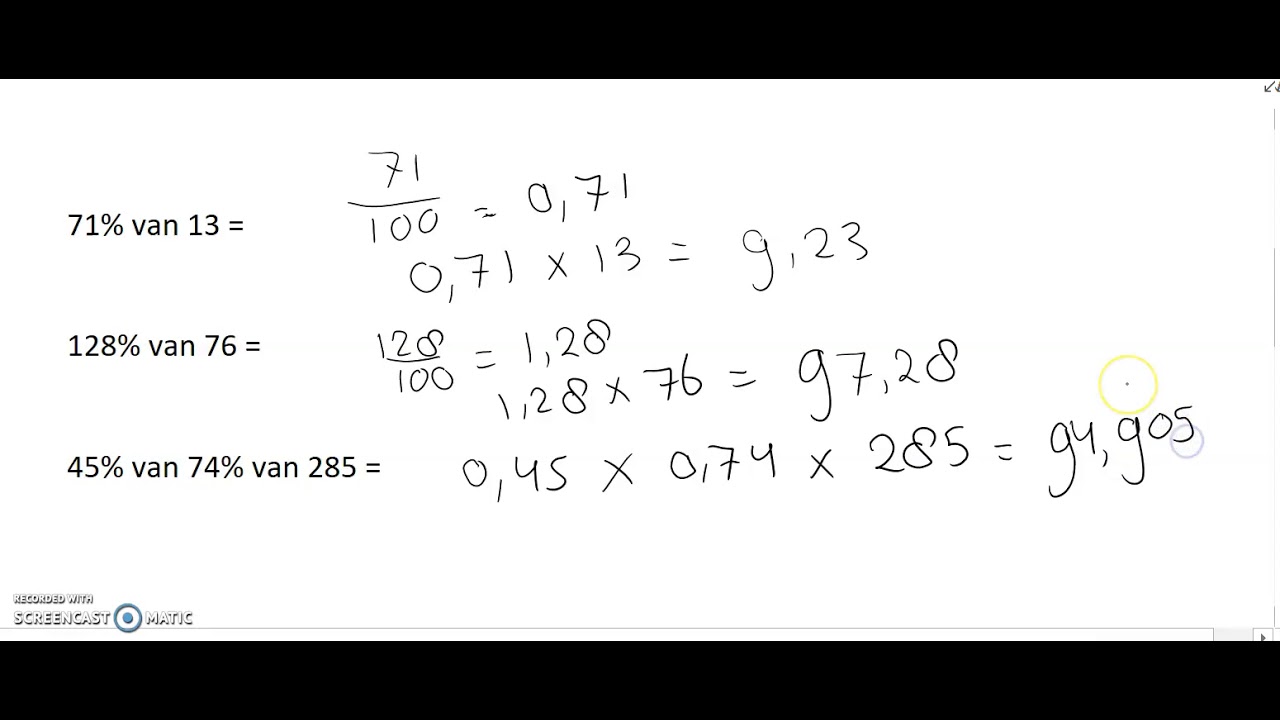 71% van 13 =
71
100 = 0,71
0,71 x 13 = 9,23
128% van 76 =
128
100 = 1,28
1,28 x 76 = 97,28
45% van 74% van 285 =
0,45 x 0,74 x 285 = 94,905
RECORDED WITH
SCREENCAST MATIC